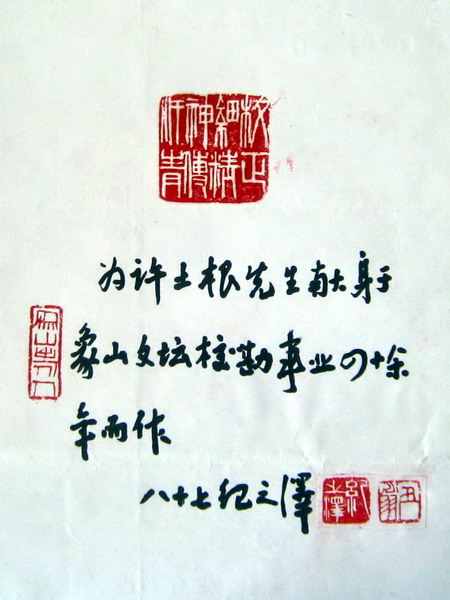 校正細精神傳汗青
为许土根先生献身于
象山文坛校勘事业四十余
年而作
八十七纪之澤